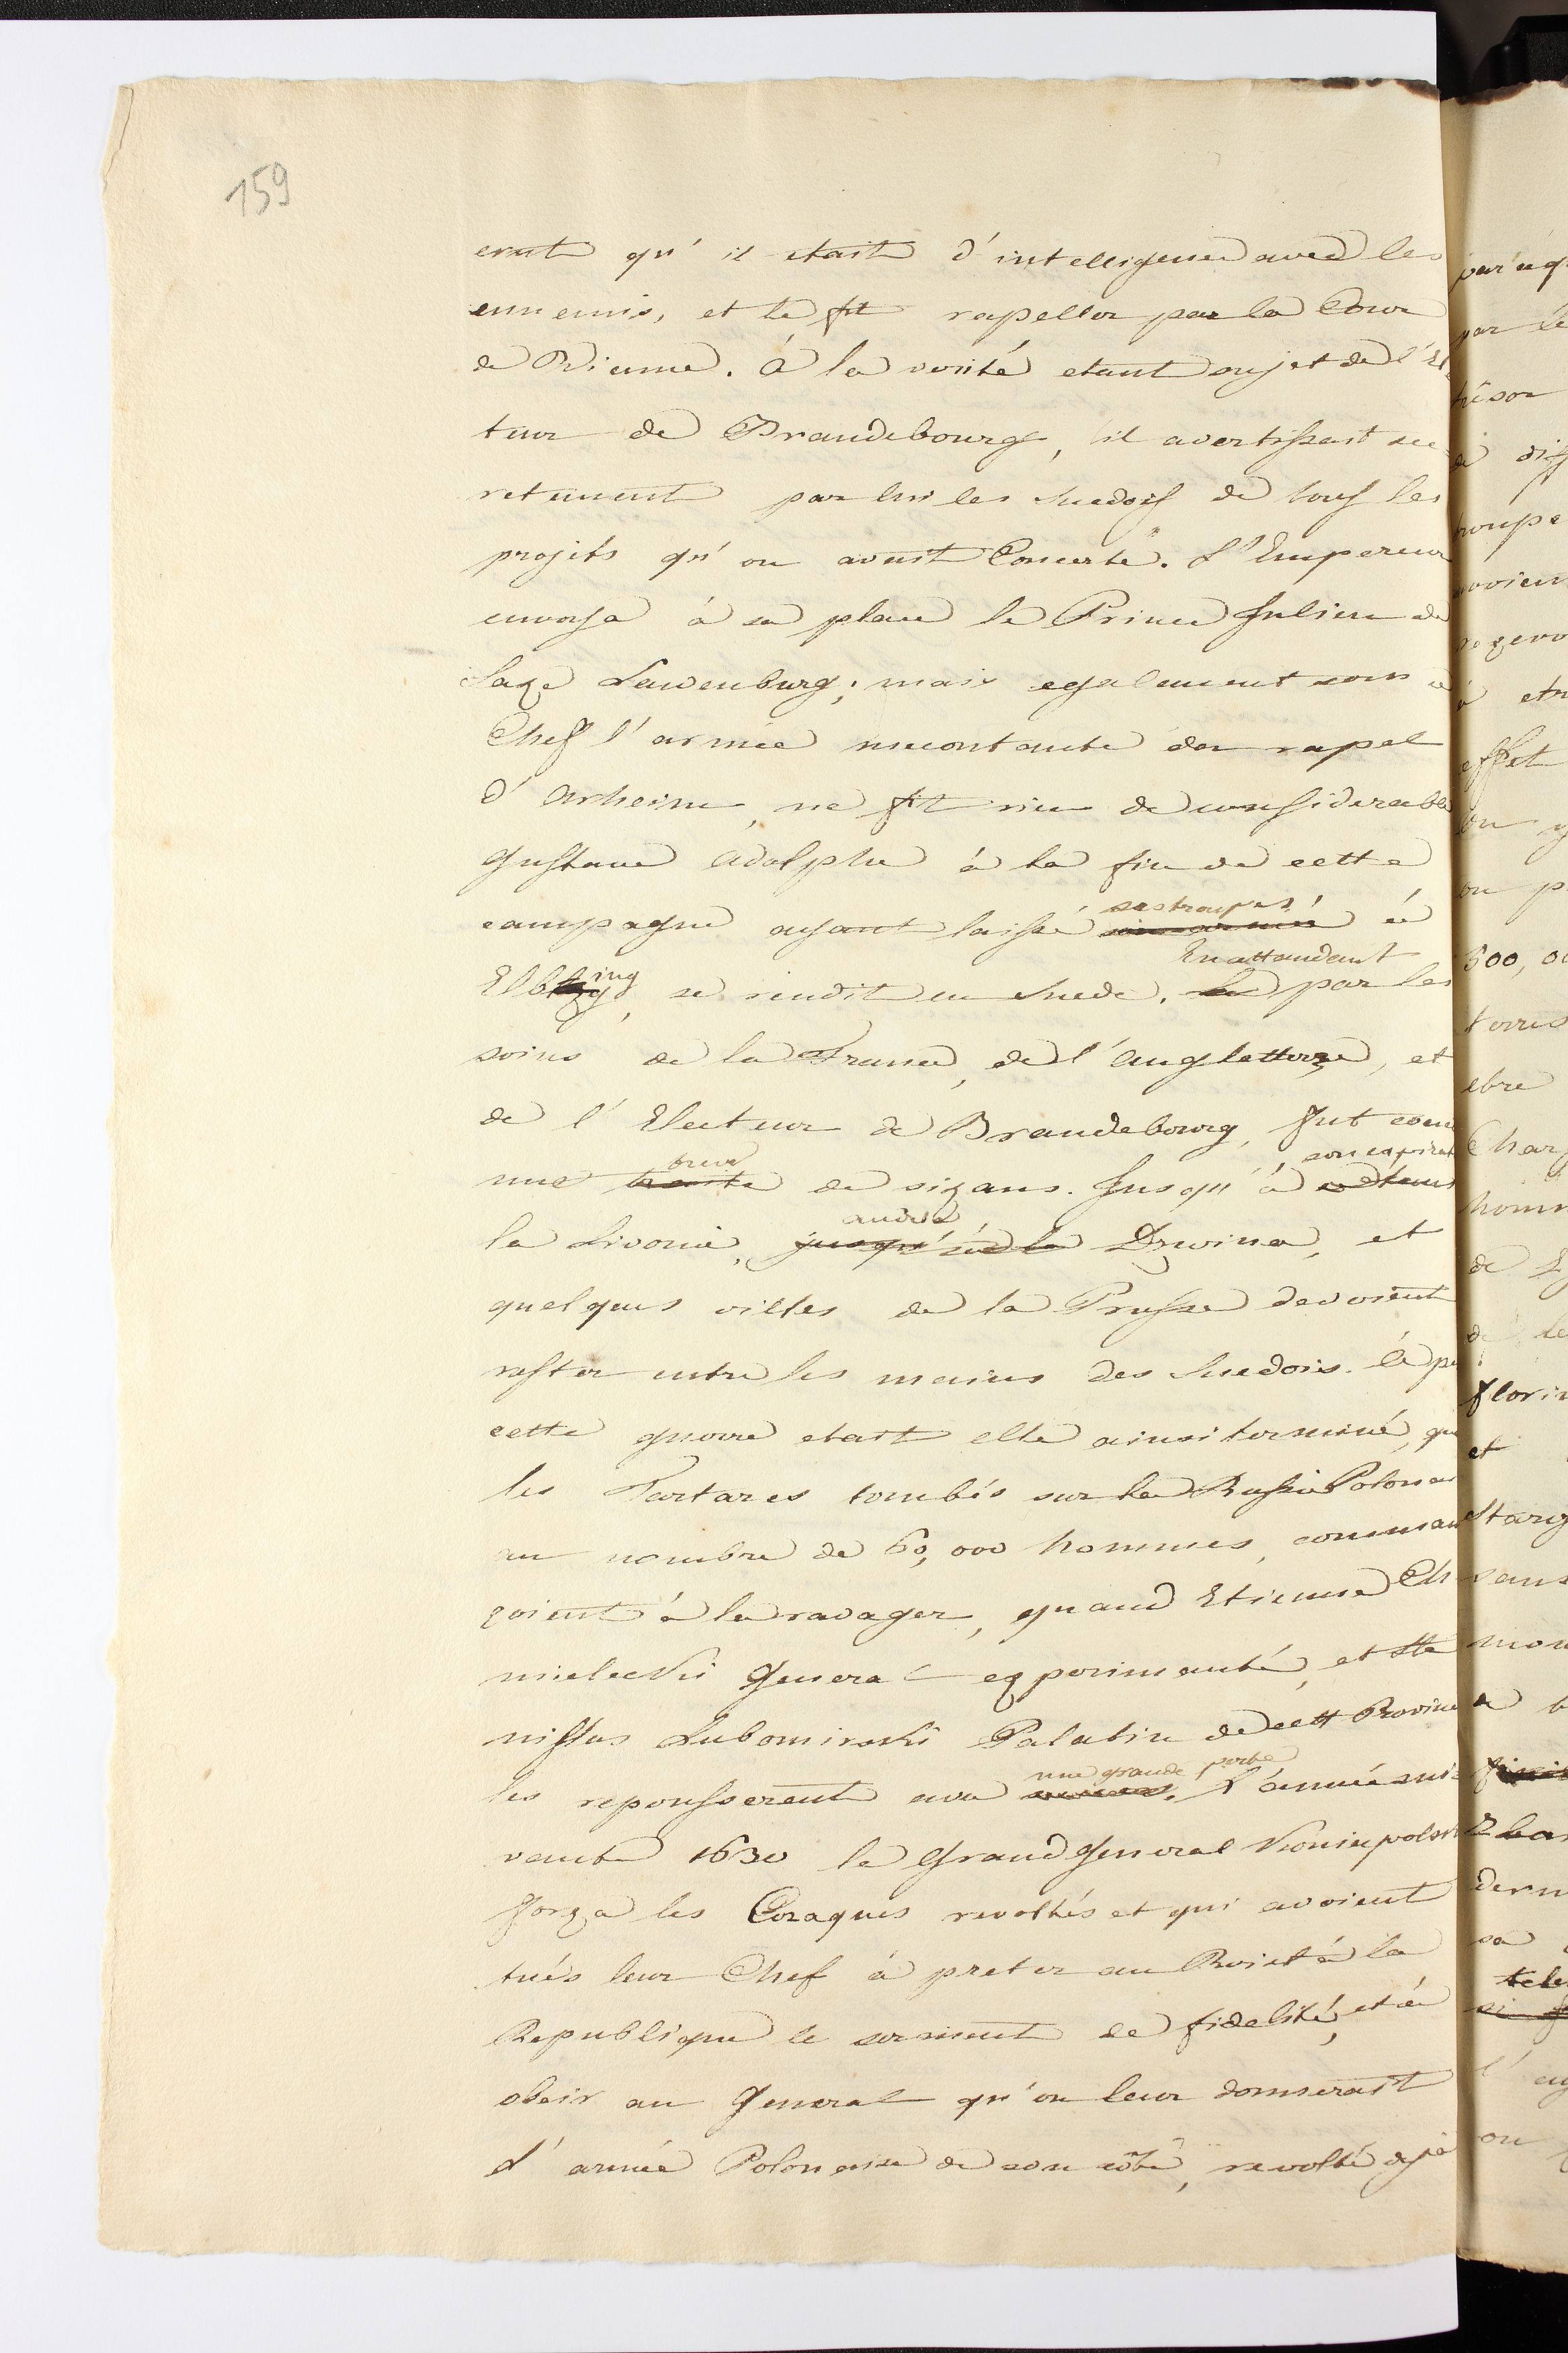 159
crut qu' il etait d' intelligence avec les
ennemis, et le fit rapeller par la Cour
de Vienne. à la verité etant sujet de l' El
teur de Brandebourg, il avertissait sec
retement par lui les Suedois de tous les
projets qu' on avait Concerté. L' Empereur
envoya à sa place le Prince Julien de
Saxe Lawenburg; mais egalement sous ce
Chef l' armée mecontante du rapel
d' Arheim, ne fit rien de considerable
Gustave Adolphe à la fin de cette
campagne ayant laissé ses troupes à
Elbing, se rendit en Suede. En attandant par les
soins de la France, de l' Angletterre, et
de l' Electeur de Brandebourg, fut conc
une treve de six ans. Jusqu' à son expirat
la Livonie, Dzwina, et
quelques villes de la Prusse devoient
rester entre les mains des Suedois. à pe
cette guerre etait elle ainsi terminé, que
les Tartares tombés sur la Russie Polonai
au nombre de 60,000 hommes, comman
çoient à la ravager, quand Etienne Ch
mielecki General experimanté, et Sta
nislas Lubomirski Palatin de cett Province
les repousserent avec une grande perte. L' année sui
vante 1630 le Grand General Koniecpolski
força les Cozaques revoltés et qui avoient
tués leur Chef à preter au Roi et à la
Republique le serment de fidelité, et à
obeir au General qu' on leur donnerait
L' armée Polonaise de son côté, revolté deja
par
par
trésor
de
troupe
à
effet
on
ou p
500,
terres
Charg
homm
de
de le
florin
et
sans
mon
dern
sa
tele
si
l'
ou